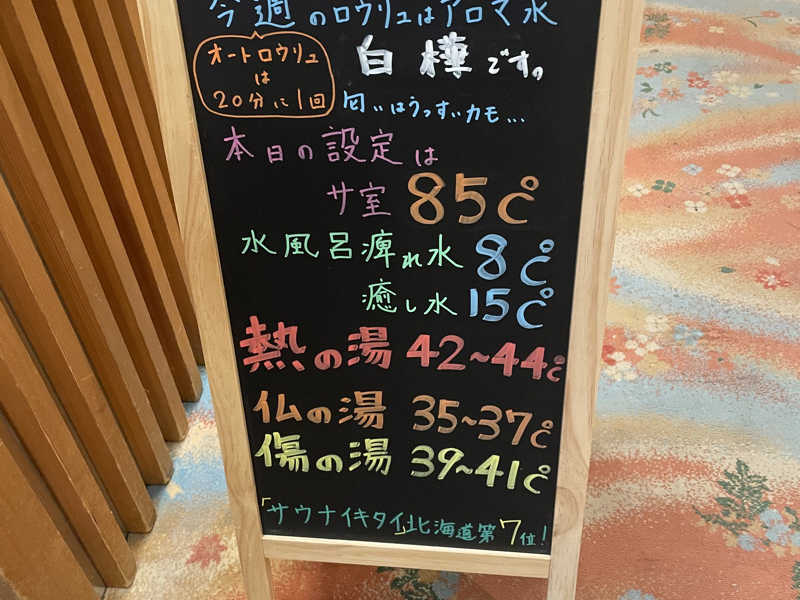 今週のロウリュはアロマ水
オートロウリュ
は
20分に1回
白樺です。
匂いはうっすいカモ...
本日の設定は
サ室 85℃
水風呂痺れ水 8℃
癒し水 15℃
熱の湯 42~44℃
仏の湯 35~37℃
傷の湯 39~41℃
「サウナイキタイ」北海道第7位!